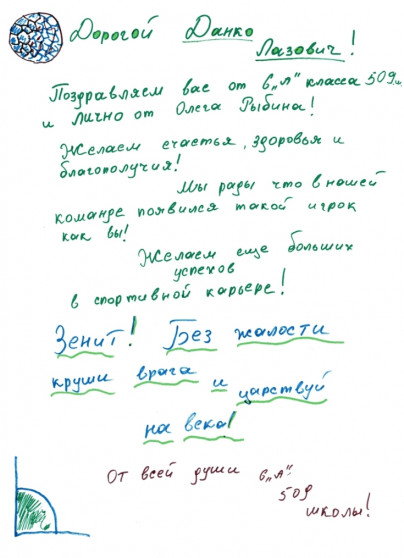 Дорогой Данко
Лазович!
Поздравляем вас от 6„Л" класса 509ш.
и лично от Олега Рыбина!
Желаем счастья, здоровья и
благополучия!
Мы рады что в нашей
команде появился такой игрок
как вы!
Желаем еще больших
успехов
в спортивной карьере!
Зенит! Без жалости
круши врага и царствуй
на века!
От всей души 6„Л"
509
школы!